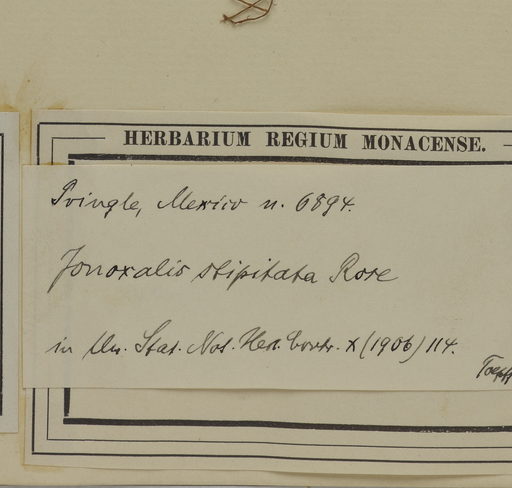 HERBARIUM REGIUM MONACENSE.
Pringle, Mexico n. 6894.
Jonoxalis stipitata Rose
in Un. Stat. Nat. Her. Contr. X (1906) 114.